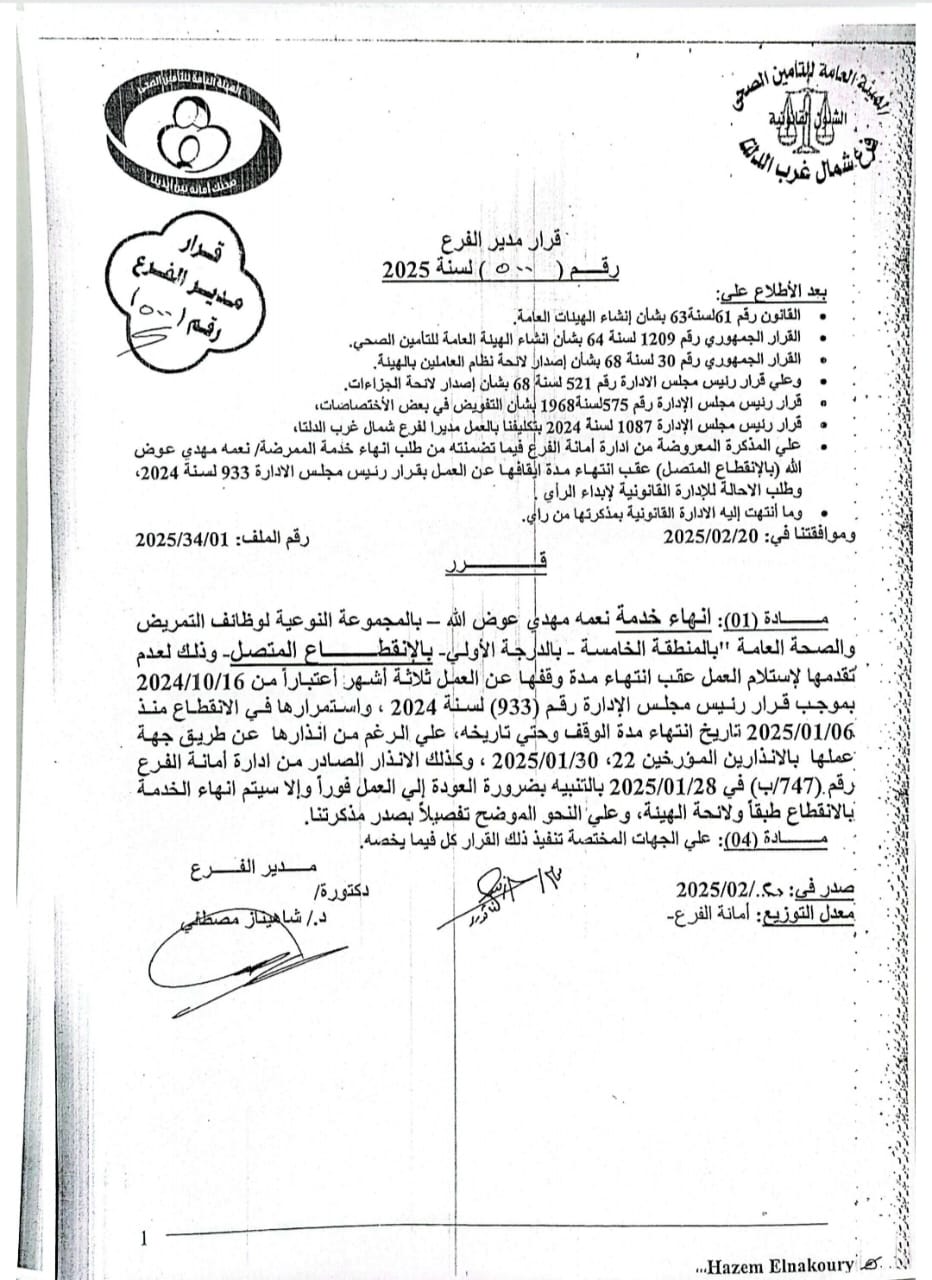 الهيئة العامة للتأمين الصحى
صحتك أمانة بين أيدينا
الهيئة العامة للتامين الصحى
الشئون القانونية
فرع شمال غرب الدلتا
قرار
مديـر الفـرع
رقـم (٥٠٠)
قرار مدير الفرع
رقـــم ( ٥٠٠ ) لسنة 2025
بعد الأطلاع علي:
• القانون رقم 61لسنة63 بشان إنشاء الهيئات العامة.
• القرار الجمهوري رقم 1209 لسنة 64 بشأن انشاء الهيئة العامة للتأمين الصحي.
• القرار الجمهوري رقم 30 لسنة 68 بشأن إصدار لائحة نظام العاملين بالهيئة.
• وعلي قرار رئيس مجلس الادارة رقم 521 لسنة 68 بشأن إصدار لائحة الجزاءات.
• قرار رئيس مجلس الإدارة رقم 575لسنة1968 بشأن التفويض في بعض الأختصاصات،
• قرار رئيس مجلس الإدارة 1087 لسنة 2024 بتكليفنا بالعمل مديرا لفرع شمال غرب الدلتا،
• علي المذكرة المعروضة من ادارة أمانة الفرع فيما تضمنته من طلب انهاء خدمة الممرضة/ نعمه مهدي عوض
الله (بالإنقطاع المتصل) عقب انتهاء مدة إيقافها عن العمل بقرار رئيس مجلس الادارة 933 لسنة 2024،
وطلب الاحالة للإدارة القانونية لإبداء الرأي .
• وما أنتهت إليه الادارة القانونية بمذكرتها من رأي.
وموافقتنا في: 2025/02/20 رقم الملف: 2025/34/01
قـــــــرر
مـــــادة (01): انهاء خدمة نعمه مهدي عوض الله – بالمجموعة النوعية لوظائف التمريض
والصحة العامة "بالمنطقة الخامسة - بالدرجة الأولي- بالإنقطـــــاع المتصل- وذلك لعدم
تقدمها لإستلام العمل عقب انتهاء مدة وقفها عن العمل ثلاثة أشهر أعتباراً من 2024/10/16
بموجب قرار رئيس مجلس الإدارة رقم (933) لسنة 2024 ، واستمرارها في الانقطاع منذ
2025/01/06 تاريخ انتهاء مدة الوقف وحتي تاريخه، علي الرغم من انذارها عن طريق جهة
عملها بالانذارين المؤرخين 22، 2025/01/30 ، وكذلك الانذار الصادر من ادارة أمانة الفرع
رقم (747/ب) في 2025/01/28 بالتنبيه بضرورة العودة إلي العمل فوراً وإلا سيتم انهاء الخدمة
بالانقطاع طبقاً ولائحة الهيئة، وعلي النحو الموضح تفصيلاً بصدر مذكرتنا.
مـــــادة (04): علي الجهات المختصة تنفيذ ذلك القرار كل فيما يخصه.
مـــدير الفـــرع
صدر في: ٢٠../2025/02 دكتورة/
معدل التوزيع: أمانة الفرع- د./ شاهيناز مصطفي
1
...Hazem Elnakoury